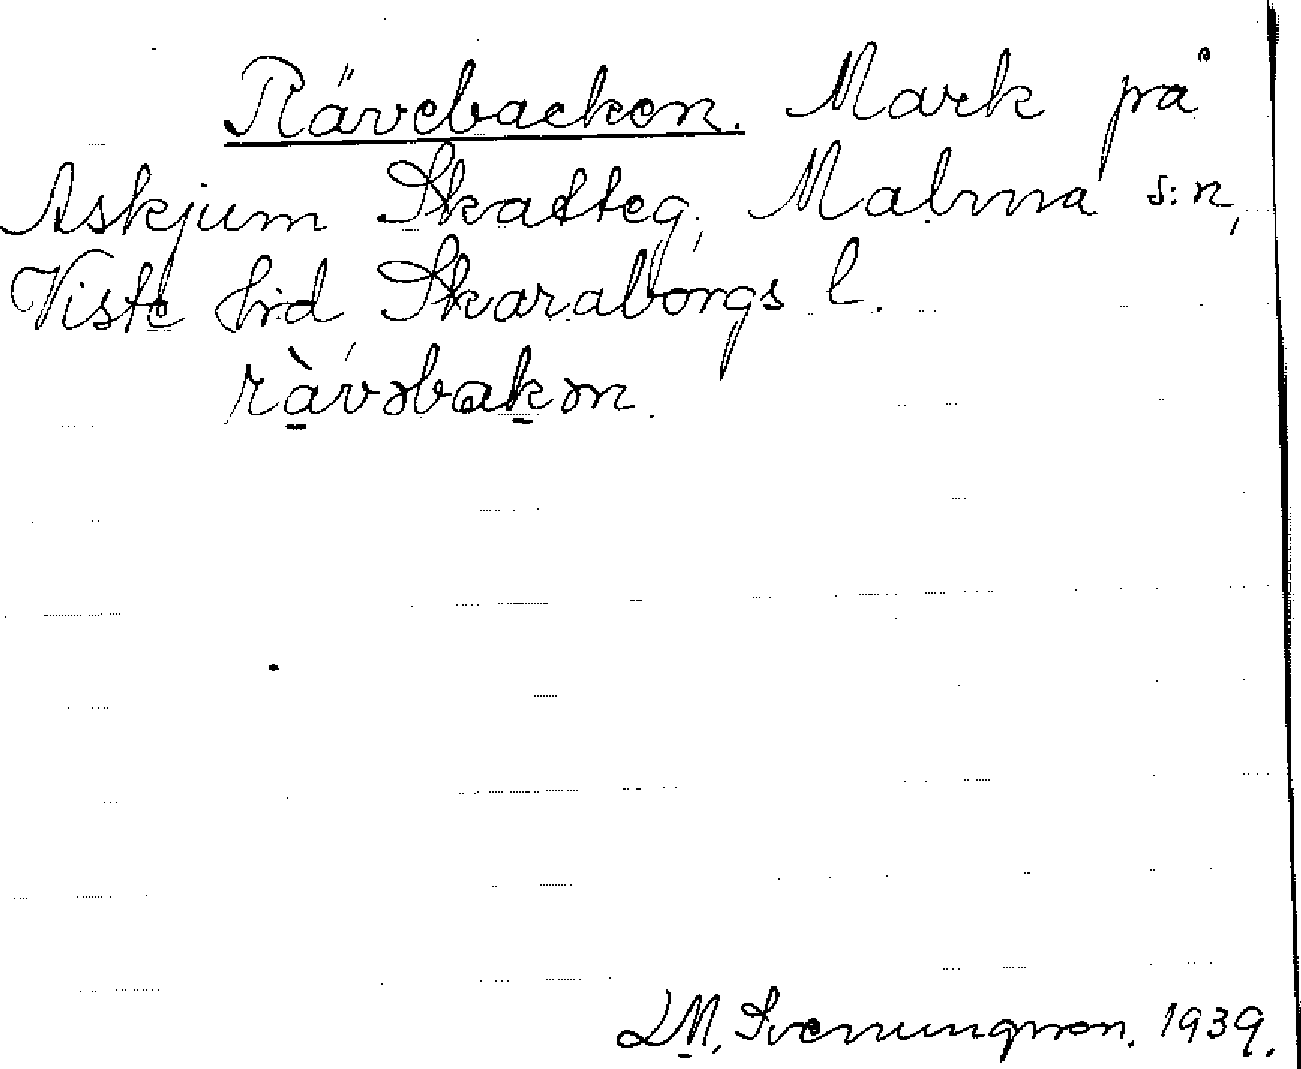 Rävebacken. Mark på
Askjum Skatteg., Malma s:n,
Viste hrd Skaraborgs l.
ràvəbakən.
LM. Svenungsson. 1939.